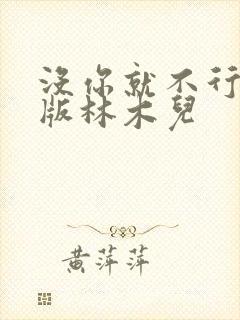 沒你就不行
版林木兒
黄萍萍